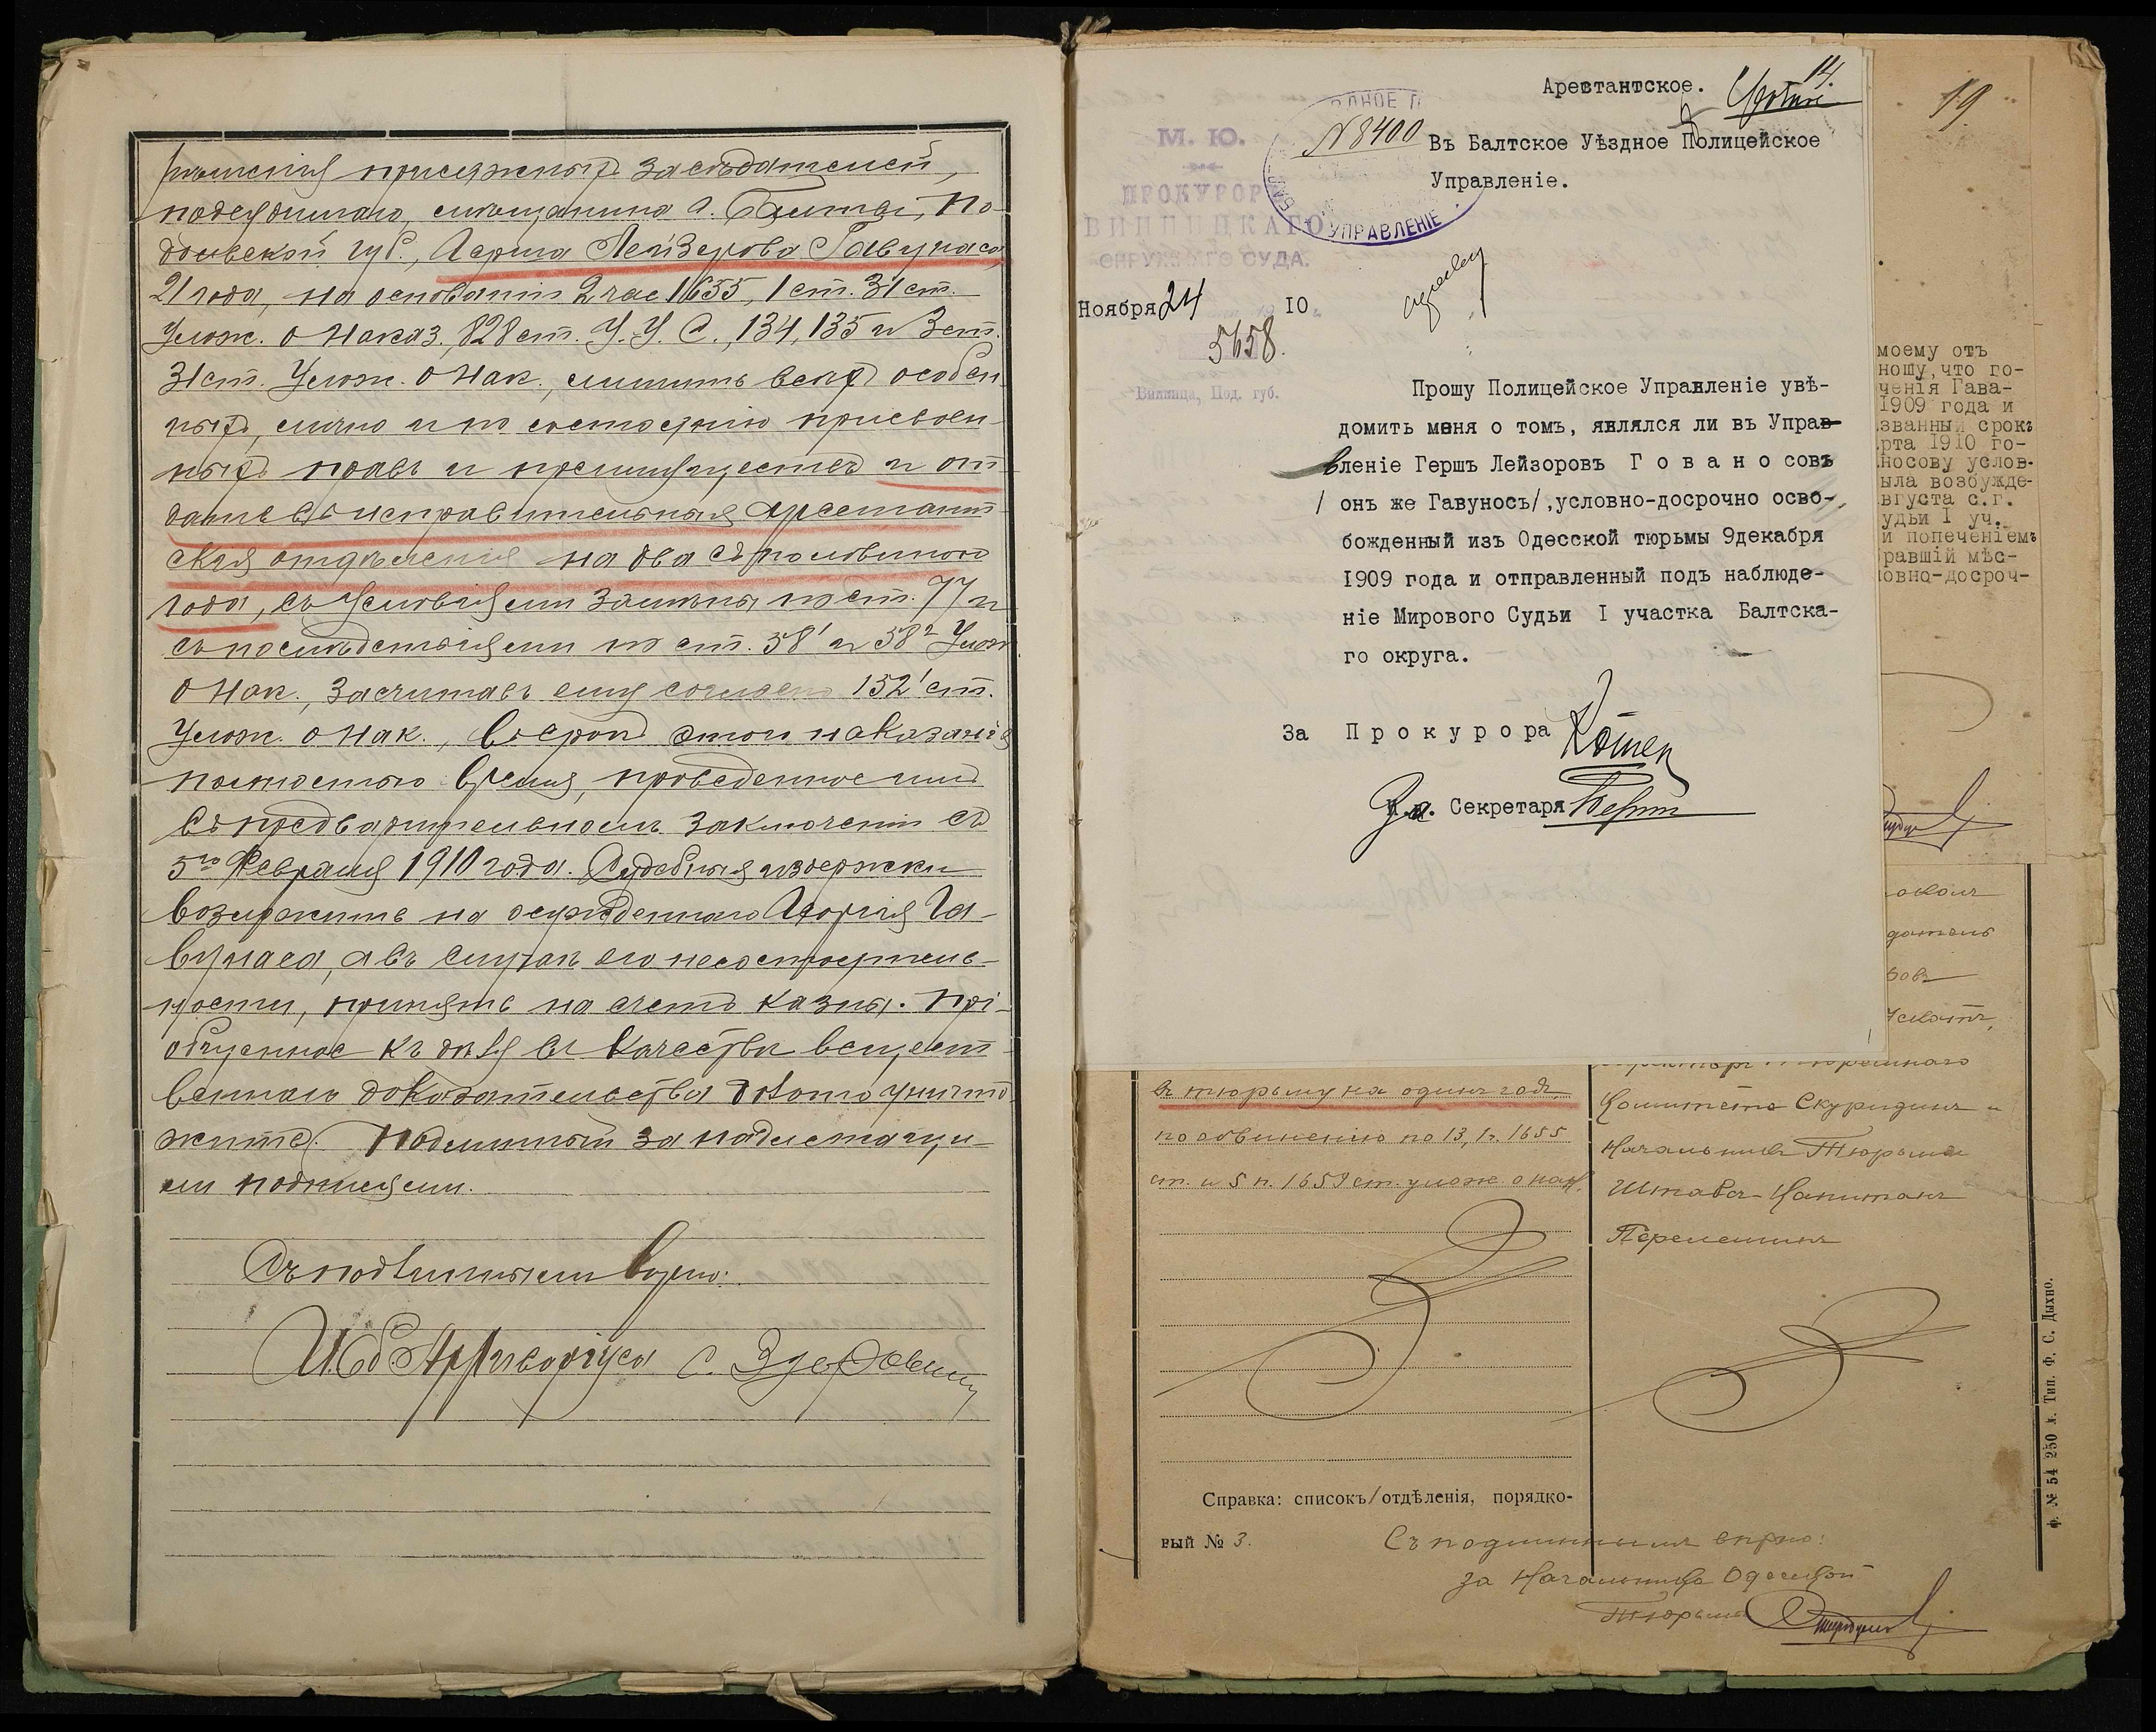 присяжныхъ засѣдателей,
подсудимаго, мѣщанина г. Балты, По-
дольской губ., Герша Лейзерова Гавунаса,
21 года, на основаніи 2 час. 1655, 1 ст. 31 ст.
Улож. о Наказ., 828 ст. У. У. С., 134, 135 и 3 ст.
31 ст. Улож. о Нак., лишить всѣхъ особен-
ныхъ, лично и по состоянію присвоен-
ныхъ правъ и преимуществъ и от-
дать въ исправительныя арестант-
скія отдѣленія на два съ половиною
года, съ условіями замѣны по ст. 77 и
съ послѣдствіями по ст. 58¹ и 58² Улож.
о Нак., засчитавъ ему согласно 152¹ ст.
Улож. о Нак., въ срокъ этого наказанія
полностью время, проведенное имъ
въ предварительномъ заключеніи съ
5го Февраля 1910 года. Судебныя издержки
возложить на осужденнаго Гершa Га-
вунаса, а въ случаѣ его несостоятель-
ности, принять на счетъ казны. Прі-
общенное къ дѣлу въ качествѣ вещест-
веннаго доказательства долото уничто-
жить. Подлинный за надлежащи-
ми подписями.
Съ подлиннымъ вѣрно:
14.
Арестантское.
М. Ю.
ПРОКУРОРЪ
ВИННИЦКАГО
ОКРУЖНАГО СУДА.
N 8400
УПРАВЛЕНІЕ
Въ Балтское Уѣздное Полицейское
Управленіе.
Ноября 24 10
5658.
Винница, Под. губ.
Прошу Полицейское Управленіе увѣ-
домить меня о томъ, являлся ли въ Упра-
вленіе Гершъ Лейзоровъ Г о в а н о совъ
/ онъ же Гавуносъ/,условно-досрочно осво-
божденный изъ Одесской тюрьмы 9декабря
1909 года и отправленный подъ наблюде-
ніе Мирового Судьи I участка Балтска-
го округа.
За П р о к у р о ра
За Секретаря
19.
моему отъ
ношу,что го-
ченія Гава-
1909 года и
званный срокъ
рта 1910 го-
носову услов-
ыла возбужде-
вгуста с.г.
удьи I уч.
и попеченіемъ
равшій мѣс-
ловно-досроч-
въ тюрьму на одинъ годъ,
по обвиненію по 13, 1ч. 1655
ст. и 5 п. 1659 ст. улож. о нак.
Тюремнаго
Комитета Скуридинъ и
Начальникъ Тюрьмы
Штабсъ-Капитанъ
Перелешинъ
Справка: списокъ/отдѣленія, порядко-
вый № 3.
Съ подлиннымъ вѣрно:
за Начальника Одесской
Тюрьмы
ф. № 54 250 л. Тип. Ф. С. Дыхно.